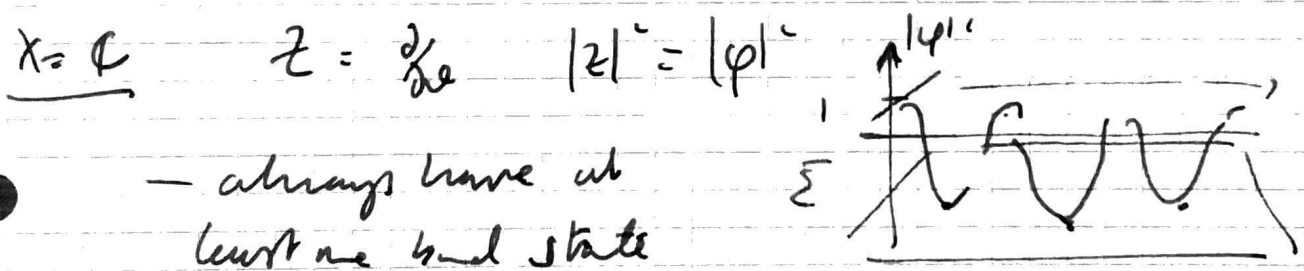 X = ℂ Z = ∂/∂θ |z|² = |φ|² |φ|²
1
— always have at
least one bound state